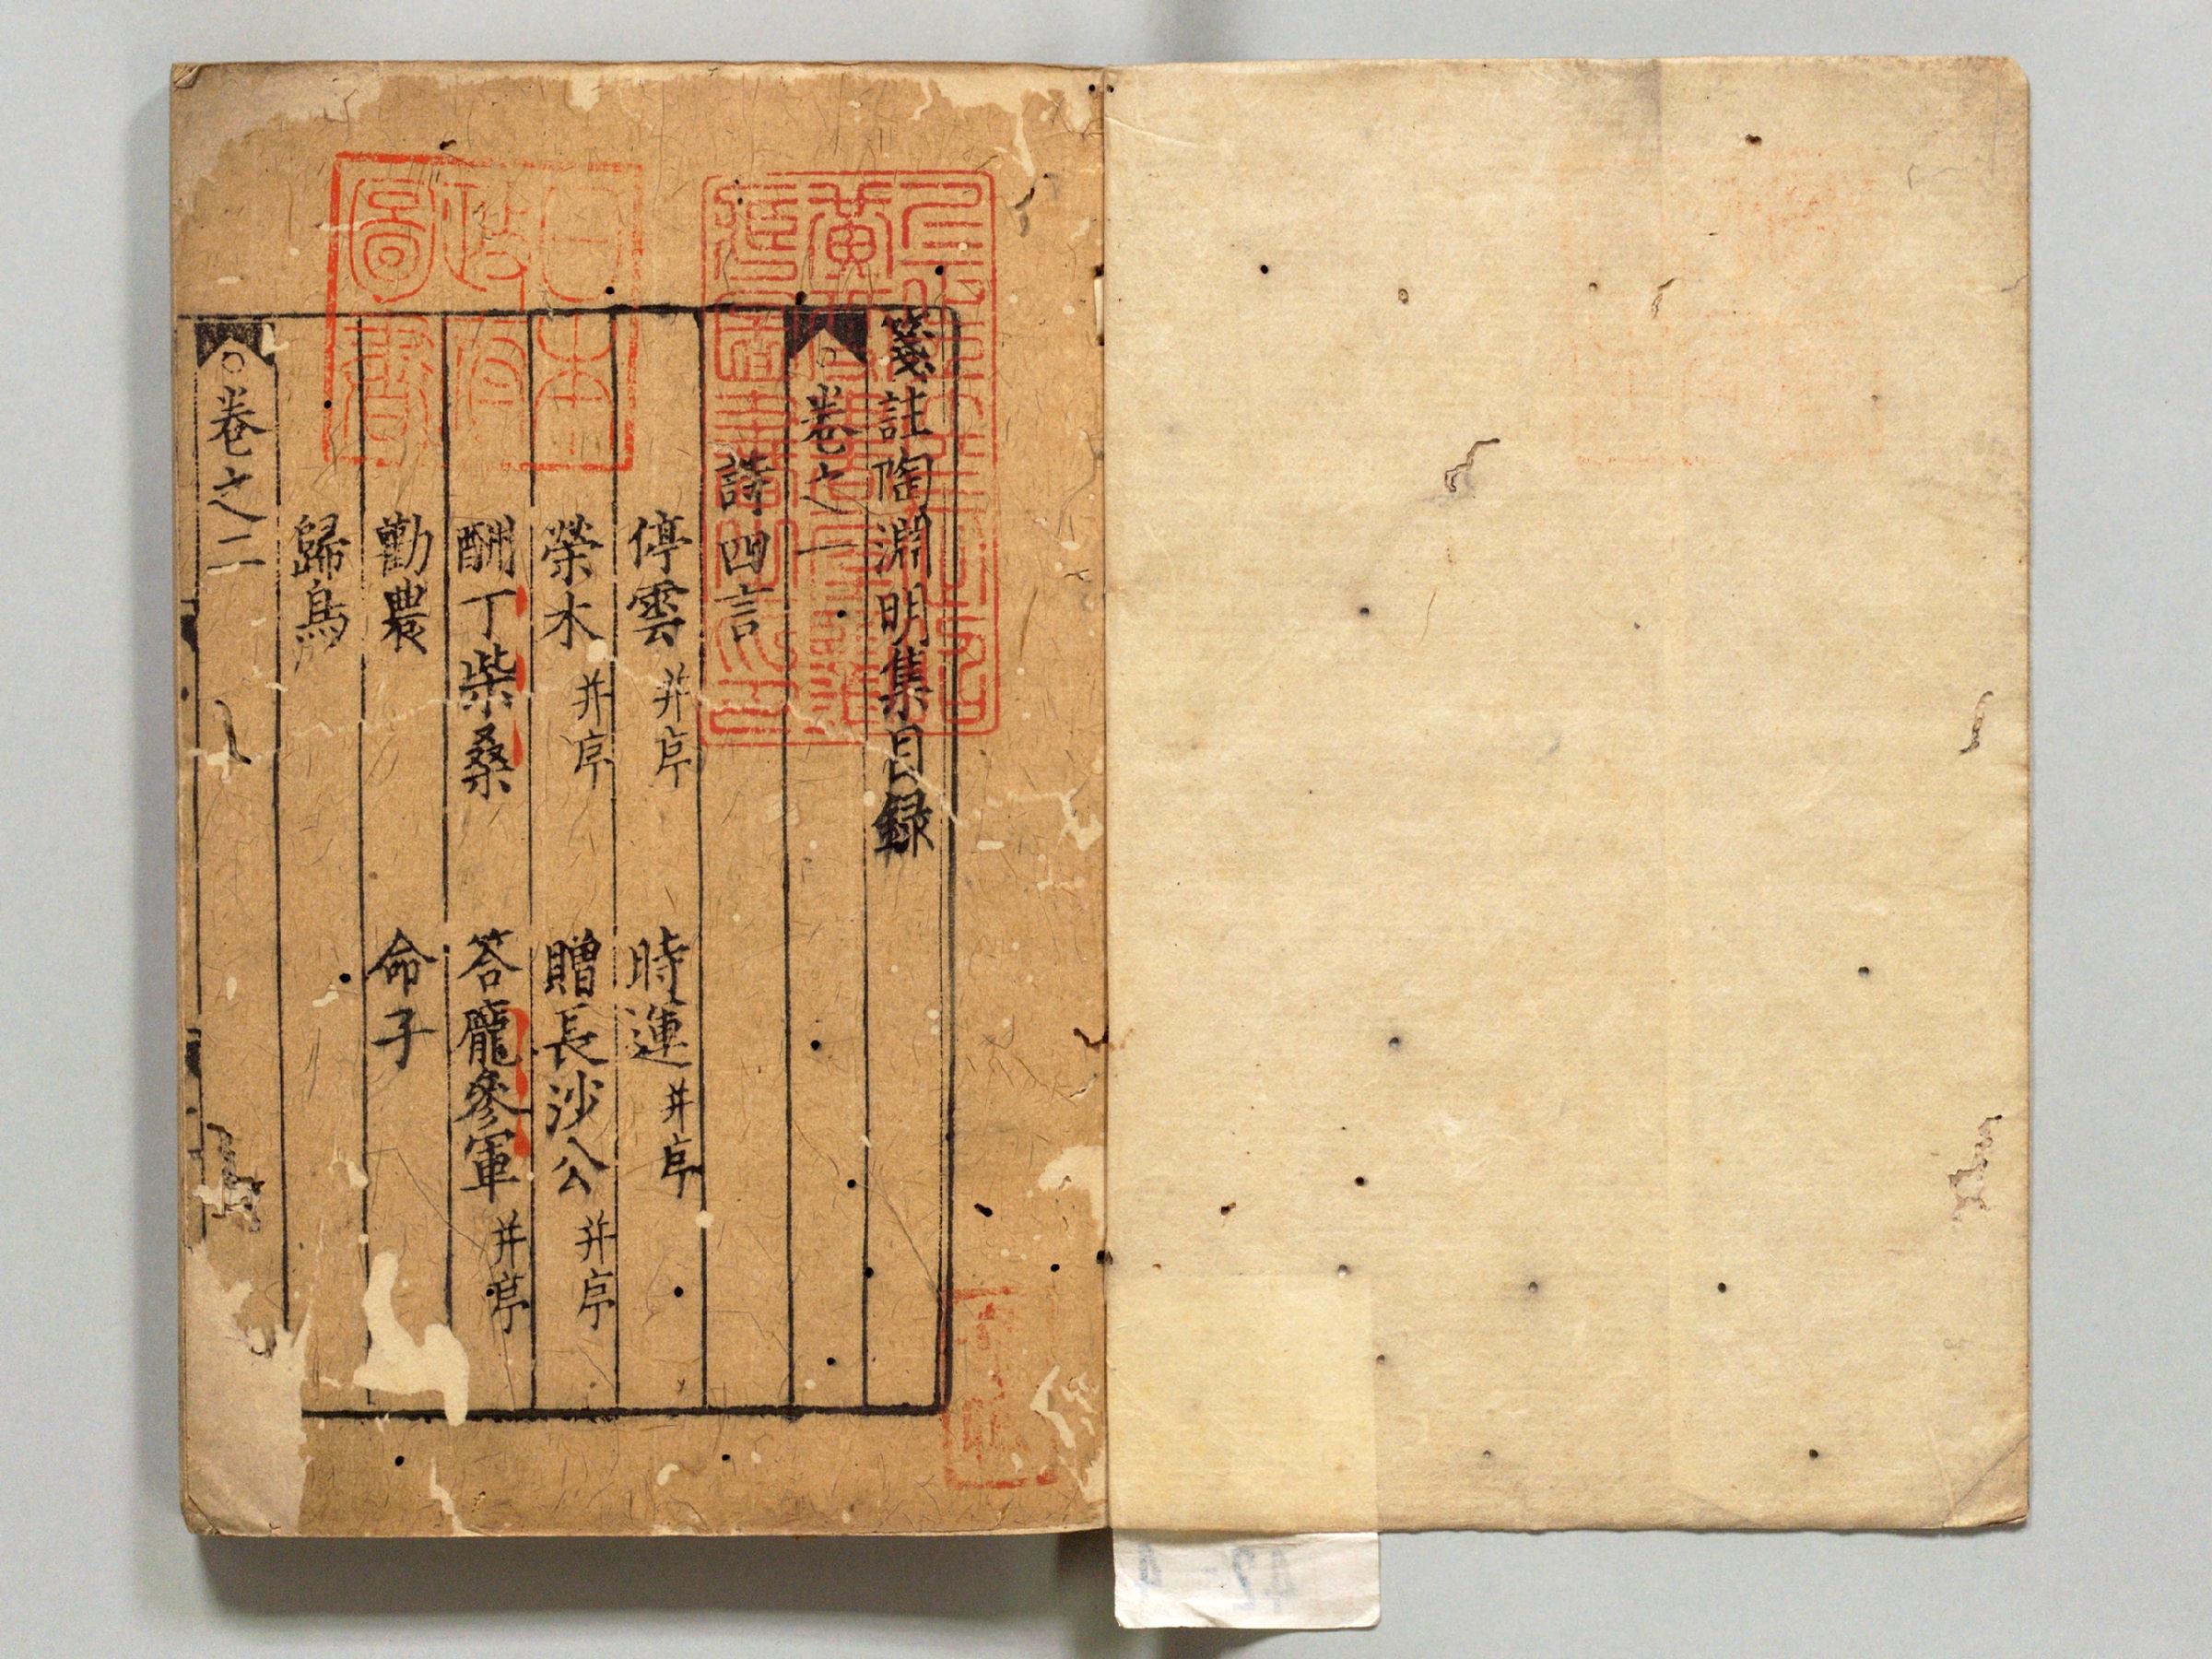 箋註陶淵明集目録
○卷之一
詩四言
停雲并序 時運并序
榮木并序 贈長沙公并序
酬丁柴桑 答龐參軍并序
勸農 命子
歸鳥
○卷之二
日本
政府
圖書